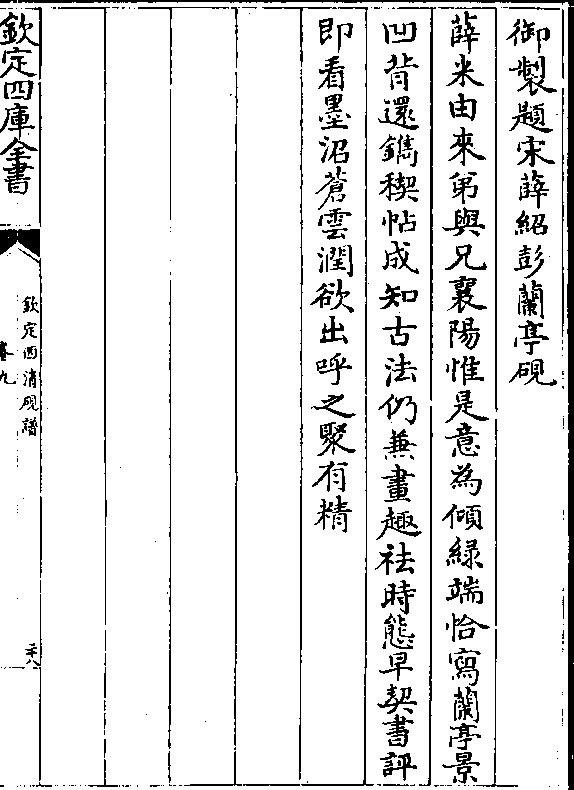 御製題宋薛紹彭蘭亭硯
薛米由來弟與兄襄陽惟是意為傾綠端恰寫蘭亭景
凹背還鐫稧帖成知古法仍兼畫趣祛時態早契書評
即看墨沼蒼雲潤欲出呼之聚有精
欽定四庫全書
欽定西清硯譜
卷九
二十八